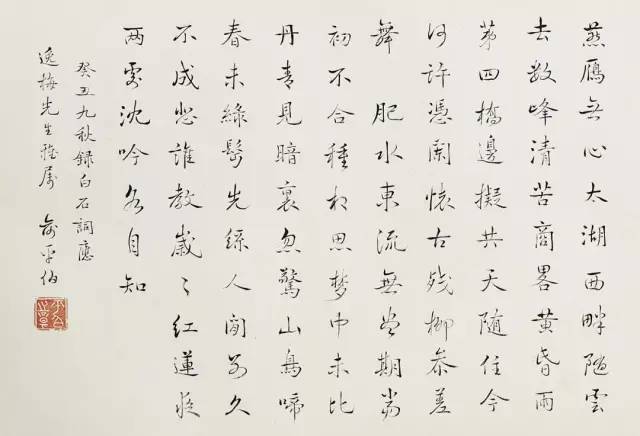 燕鴈无心太湖西畔随雲
去数峰清苦商畧黄昏雨
苐四橋邊擬共天随住今
何許憑闌懷古残柳参差
舞　肥水東流無尽期當
初不合種相思梦中未比
丹青見暗裏忽驚山鳥啼
春未綠鬢先絲人間别久
不成悲誰教歲〻紅蓮夜
两處沈吟各自知
癸丑九秋録白石詞應
逸梅先生雅属　俞平伯